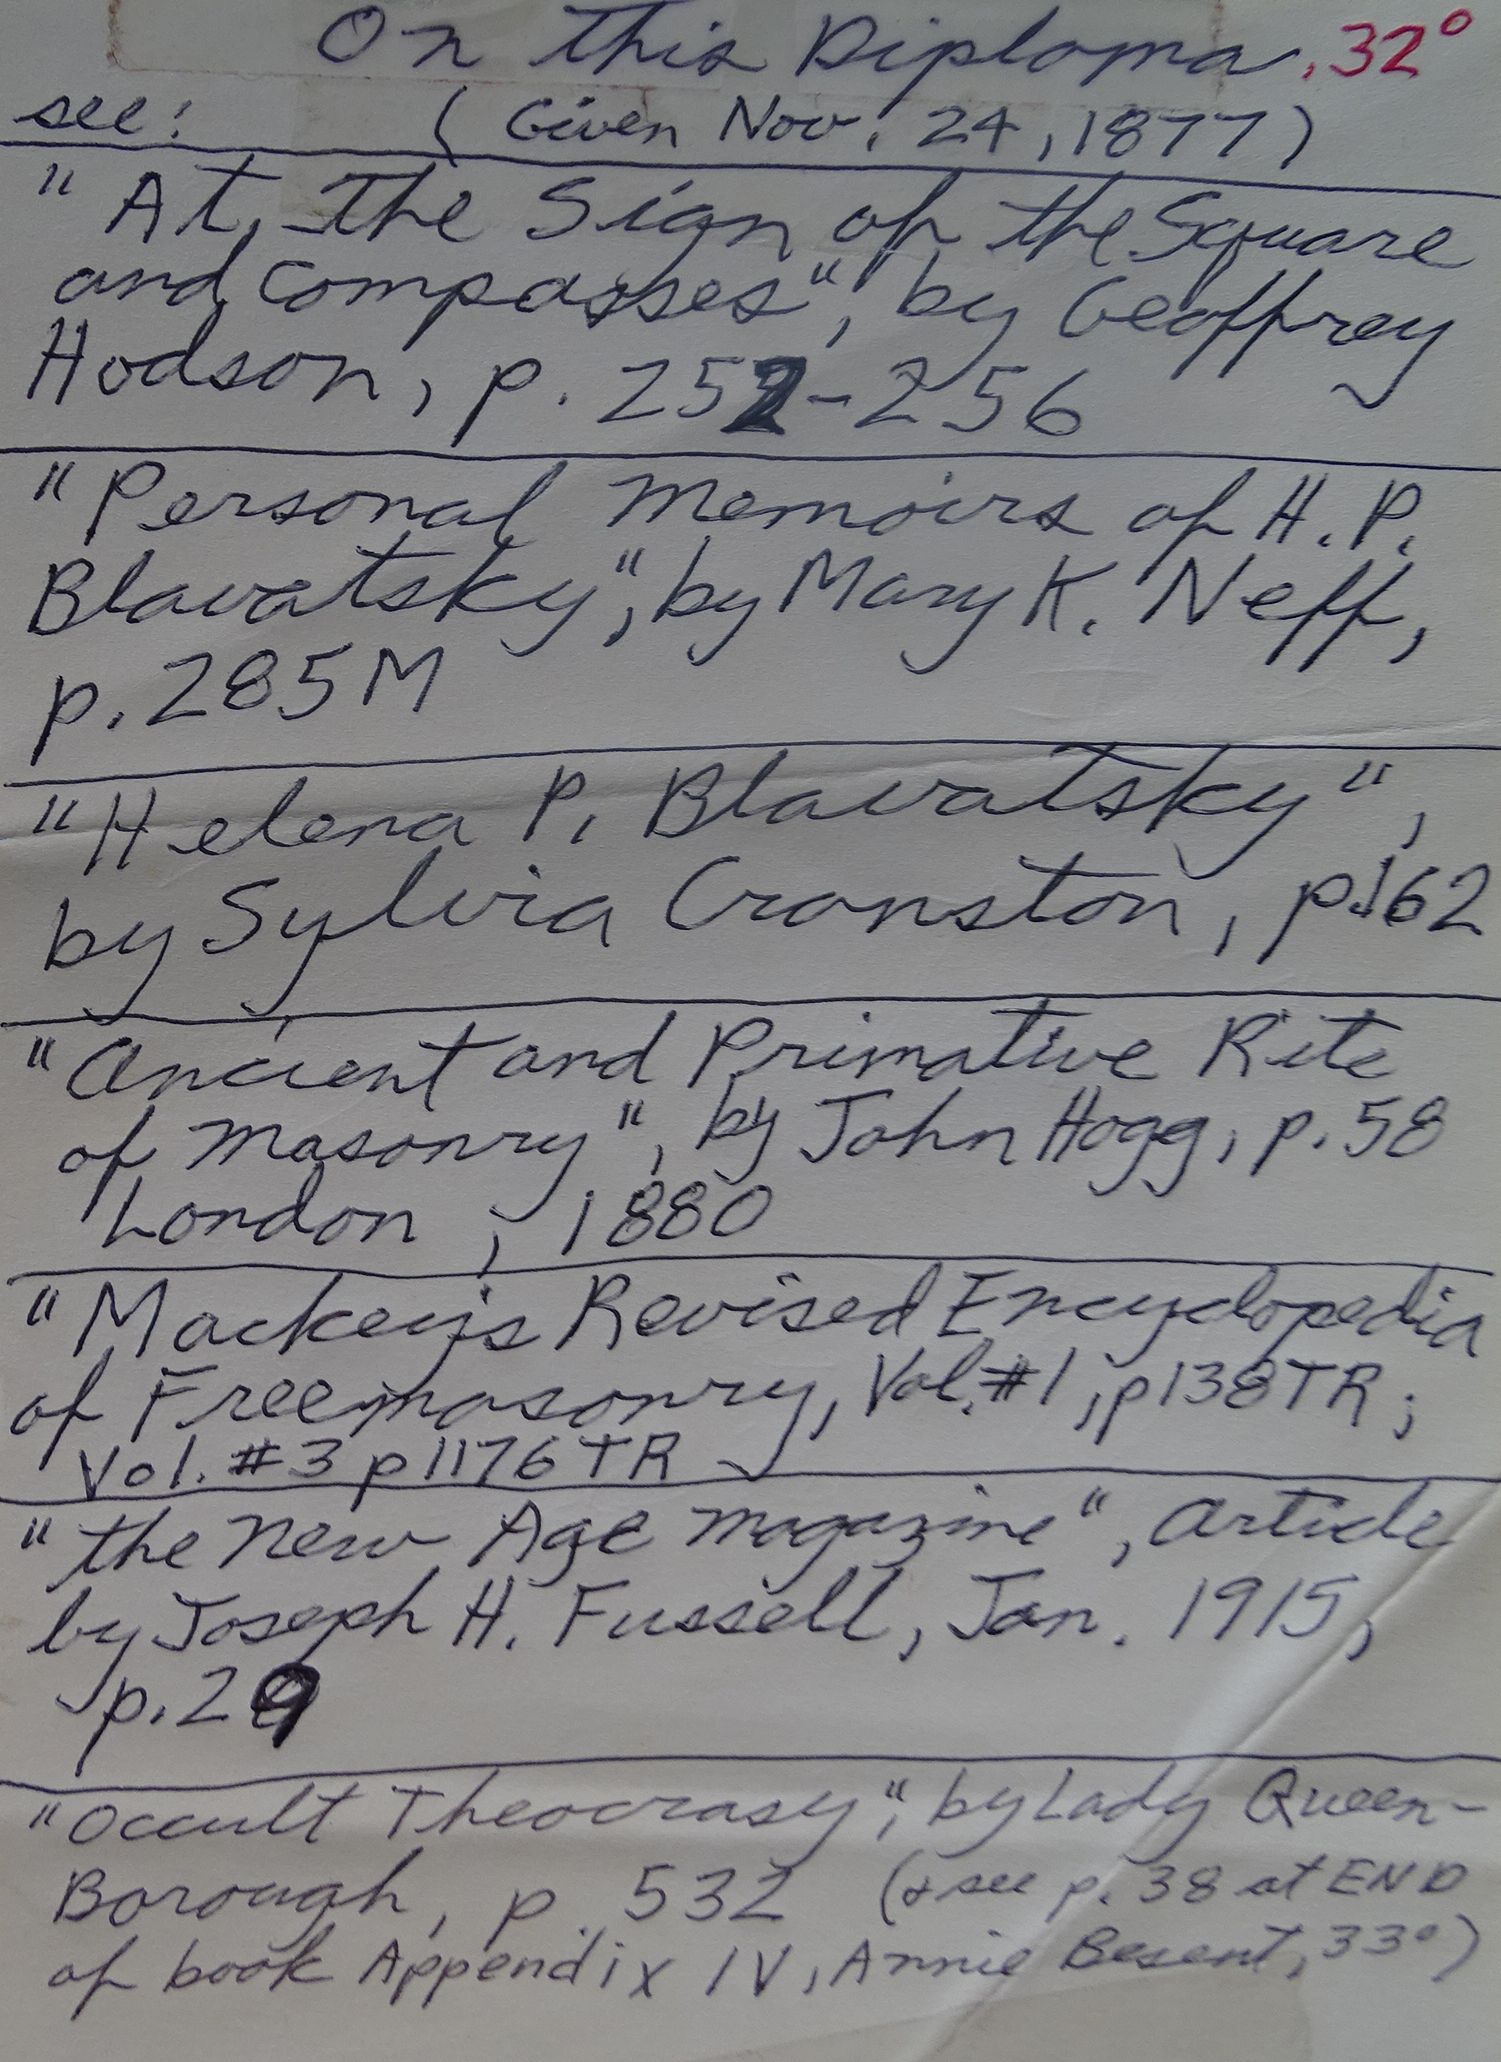 On this Diploma, 32°
see: (Given Nov. 24, 1877)
"At the Sign of the Square
and Compasses", by Geoffrey
Hodson, p. 252-256
"Personal Memoirs of H.P.
Blavatsky", by Mary K. Neff,
p. 285M
"Helena P. Blavatsky",
by Sylvia Cranston, p.162
"Ancient and Primative Rite
of Masonry", by John Hogg, p. 58
London, 1880
"Mackey's Revised Encyclopedia
of Freemasonry, Vol. #1, p138TR;
Vol. #3 p1176TR
"the New Age magazine", Article
by Joseph H. Fussell, Jan. 1915,
p. 29
"Occult Theocrasy", by Lady Queen-
Borough, p. 532 (& see p. 38 at END
of book Appendix IV, Annie Besent, 33°)